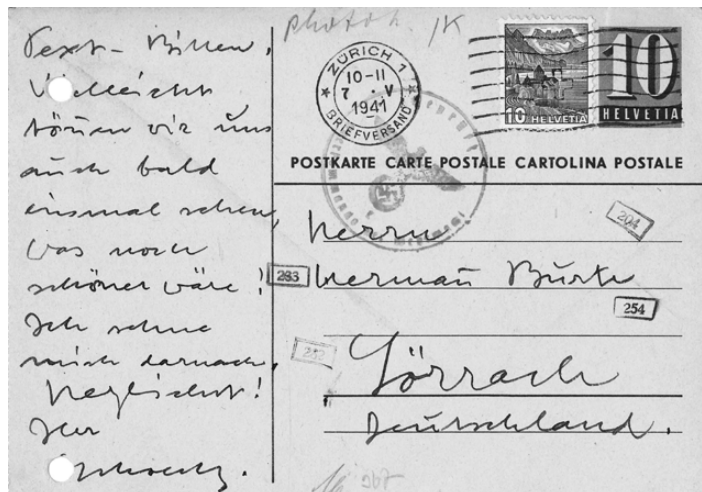 Text-Bitten.
Vielleicht
können wir uns
auch bald
einmal sehen,
was noch
schöner wäre!
Ich sehne
mich darnach.
Herzlichst!
Ihr
Schoeck.
Photok. JK
ZÜRICH 1
10-11
7. V
1941
BRIEFVERSAND
10 HELVETIA
10
HELVETIA
POSTKARTE CARTE POSTALE CARTOLINA POSTALE
Herrn
204
283
Herman Burte
254
212
Lörrach
Deutschland.